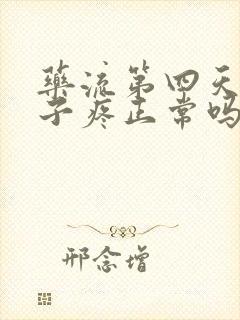 药流第四天
子疼正常吗
邢念增